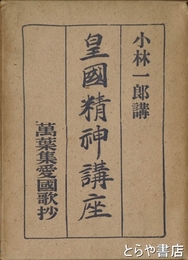 小林一郎講
皇國精神講座
萬葉集愛國歌抄
古書 古本
とらや書房